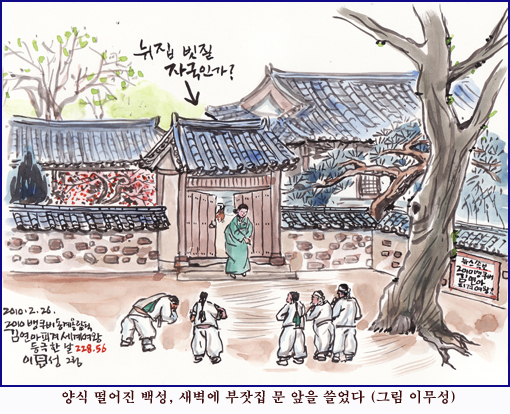 뉘집 빗질
자국인가?
뉴스속보
김연아
2010. 2. 26.
2010 밴쿠버 동계올림픽
김연아 피겨 세계여왕
등극한 날 228.56
이무성 그림
양식 떨어진 백성, 새벽에 부잣집 문 앞을 쓸었다 (그림 이무성)